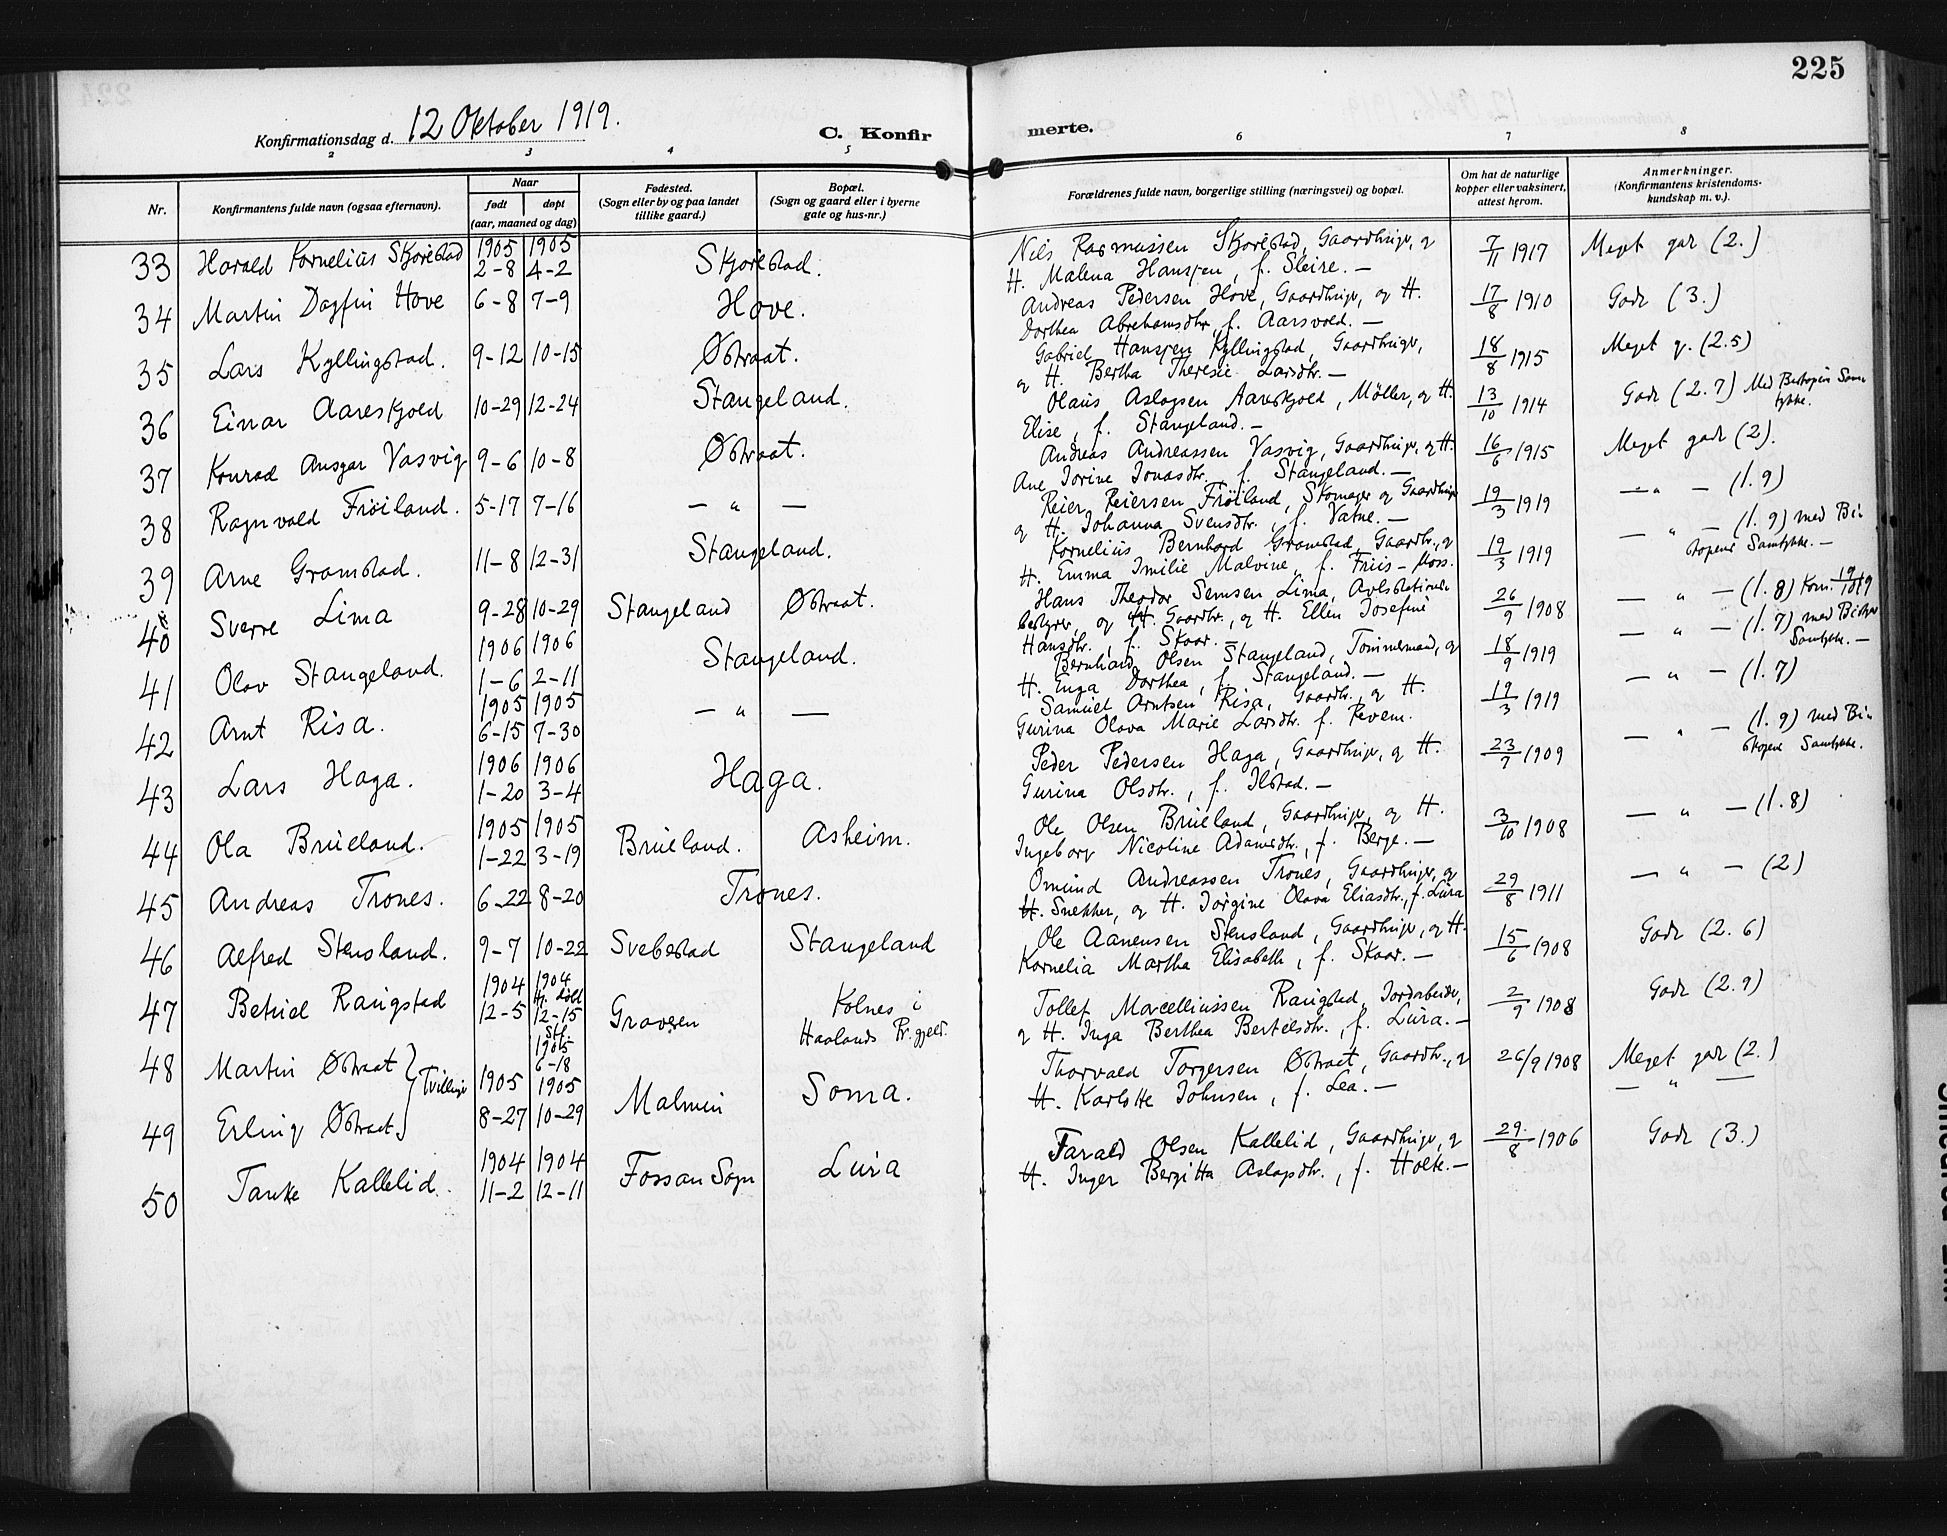 225
Konfirmationsdag d. 12 Oktober 1919. C. Konfirmerte.
2 3 4 5 6 7 8
Nr. Konfirmantens fulde navn (ogsaa efternavn). Naar født døpt (aar, maaned og dag) Fødested. (Sogn eller by og paa landet tillike gaard.) Bopæl. (Sogn og gaard eller i byerne gate og hus-nr.) Forældrenes fulde navn, borgerlige stilling (næringsvei) og bopæl. Om hat de naturlige kopper eller vaksinert, attest herom. Anmerkninger. (Konfirmantens kristendoms-kundskap m. v.).
33 Harald Kornelius Skjørestad 1905 2-8 1905 4-2 Skjørestad. Nils Rasmussen Skjørestad, Gaardbruger, og
H. Malena Hanssen, f. Sleire. — 7/11 1917 Meget god (2.)
34 Martin Dagfin Hove 6-8 7-9 Hove. Andreas Pedersen Hove, Gaardbruger, og H.
Dorthea Abrahamsdtr, f. Aarsvold. — 17/8 1910 Godt (3.)
35 Lars Kyllingstad. 9-12 10-15 Østraat. Gabriel Hanssen Kyllingstad, Gaardbruger,
og H. Bertha Theresie Larsdtr. — 18/8 1915 Meget g. (2.5)
36 Einar Aareskjold 10-29 12-24 Stangeland. Olaus Aslagsen Aareskjold, Møller, og H.
Elise, f. Stangeland. — 13/10 1914 Godt (2.7) Med Bispens Samtykke.
37 Konrad Ansgar Vasvig 9-6 10-8 Østraat. Andreas Andreassen Vasvig, Gaardbruger, og H.
Ane Jorine Jonasdtr. f. Stangeland. — 16/6 1915 Meget godt (2).
38 Ragnvald Frøiland. 5-17 7-16 — " — Reier Reiersen Frøiland, Skomager og Gaardbruger
og H. Johanna Svensdtr., f. Vatne. — 19/3 1919 — " — (1.9)
39 Arne Gramstad. 11-8 12-31 Stangeland. Kornelius Bernhard Gramstad, Gaardbr., og
H. Emma Imilie Malvine, f. Friis-Moss. 19/3 1919 — " — (1.9) med Biskopens Samtykke. —
40 Sverre Lima 9-28 10-29 Stangeland Østraat. Hans Theodor Semsen Lima, Avlsbestyrer, og H. Gaardbr., og H. Ellen Josefine
Hansdtr., f. Skaar. — 26/9 1908 — " — (1.8)
41 Olav Stangeland. 1906 1-6 1906 2-11 Stangeland. Bernhard Olsen Stangeland, Tømmermand, og
H. Inga Dorthea, f. Stangeland. — 18/9 1919 — " — (1.7) med Biskops Samtykke. —
42 Arnt Risa. 1905 6-15 1905 7-30 — " — Samuel Arntsen Risa, Gaardbr., og H.
Gurina Olava Marie Larsdtr. f. Revem. 19/3 1919 — " — (1.7)
43 Lars Haga. 1906 1-20 1906 3-4 Haga. Peder Pedersen Haga, Gaardbruger, og H.
Gurina Olsdtr., f. Ilstad. — 23/9 1909 — " — (1.9) med Biskopens Samtykke.
44 Ola Brueland. 1905 1-22 1905 3-19 Brueland. Asheim. Ole Olsen Brueland, Gaardbruger, og H.
Ingeborg Nicoline Adamsdtr., f. Berge. — 3/10 1908 — " — (1.8)
45 Andreas Trones. 6-22 8-20 Trones. Omund Andreassen Trones, Gaardbruger, og
H. Snekker, og H. Jorgine Olava Eliasdtr., f. Lura 29/8 1911 — " — (2)
46 Alfred Stensland. 9-7 10-22 Svebestad Stangeland Ole Aanensen Stensland, Gaardbruger, og H.
Kornelia Martha Elisabeth, f. Skaar. — 15/6 1908 Godt (2.6)
47 Betuel Raugstad 1904 12-5 1904 Hj. døbt 12-15 Stf. 1905 6-18 Gravren Kolnes i Haalands Pr.gjeld. Tollef Marcelliussen Raugstad, Jordarbeider,
og H. Inga Berthea Bertelsdtr., f. Lura. — 2/9 1908 Godt (2.9)
48 Martin Østraat } Tvillinger 1905 8-27 1905 10-29 Malmin Soma. Thorvald Torgersen Østraat, Gaardbr., og
H. Karlotte Johnsen, f. Lea. — 26/9 1908 Meget godt (2.)
49 Erling Østraat } — " —
50 Tanke Kallelid. 1904 11-2 1904 12-11 Fossan Sogn Lura Tarald Olsen Kallelid, Gaardbruger, og
H. Inger Bergitta Aslagsdtr., f. Holte. — 29./8 1906 Godt (3.)